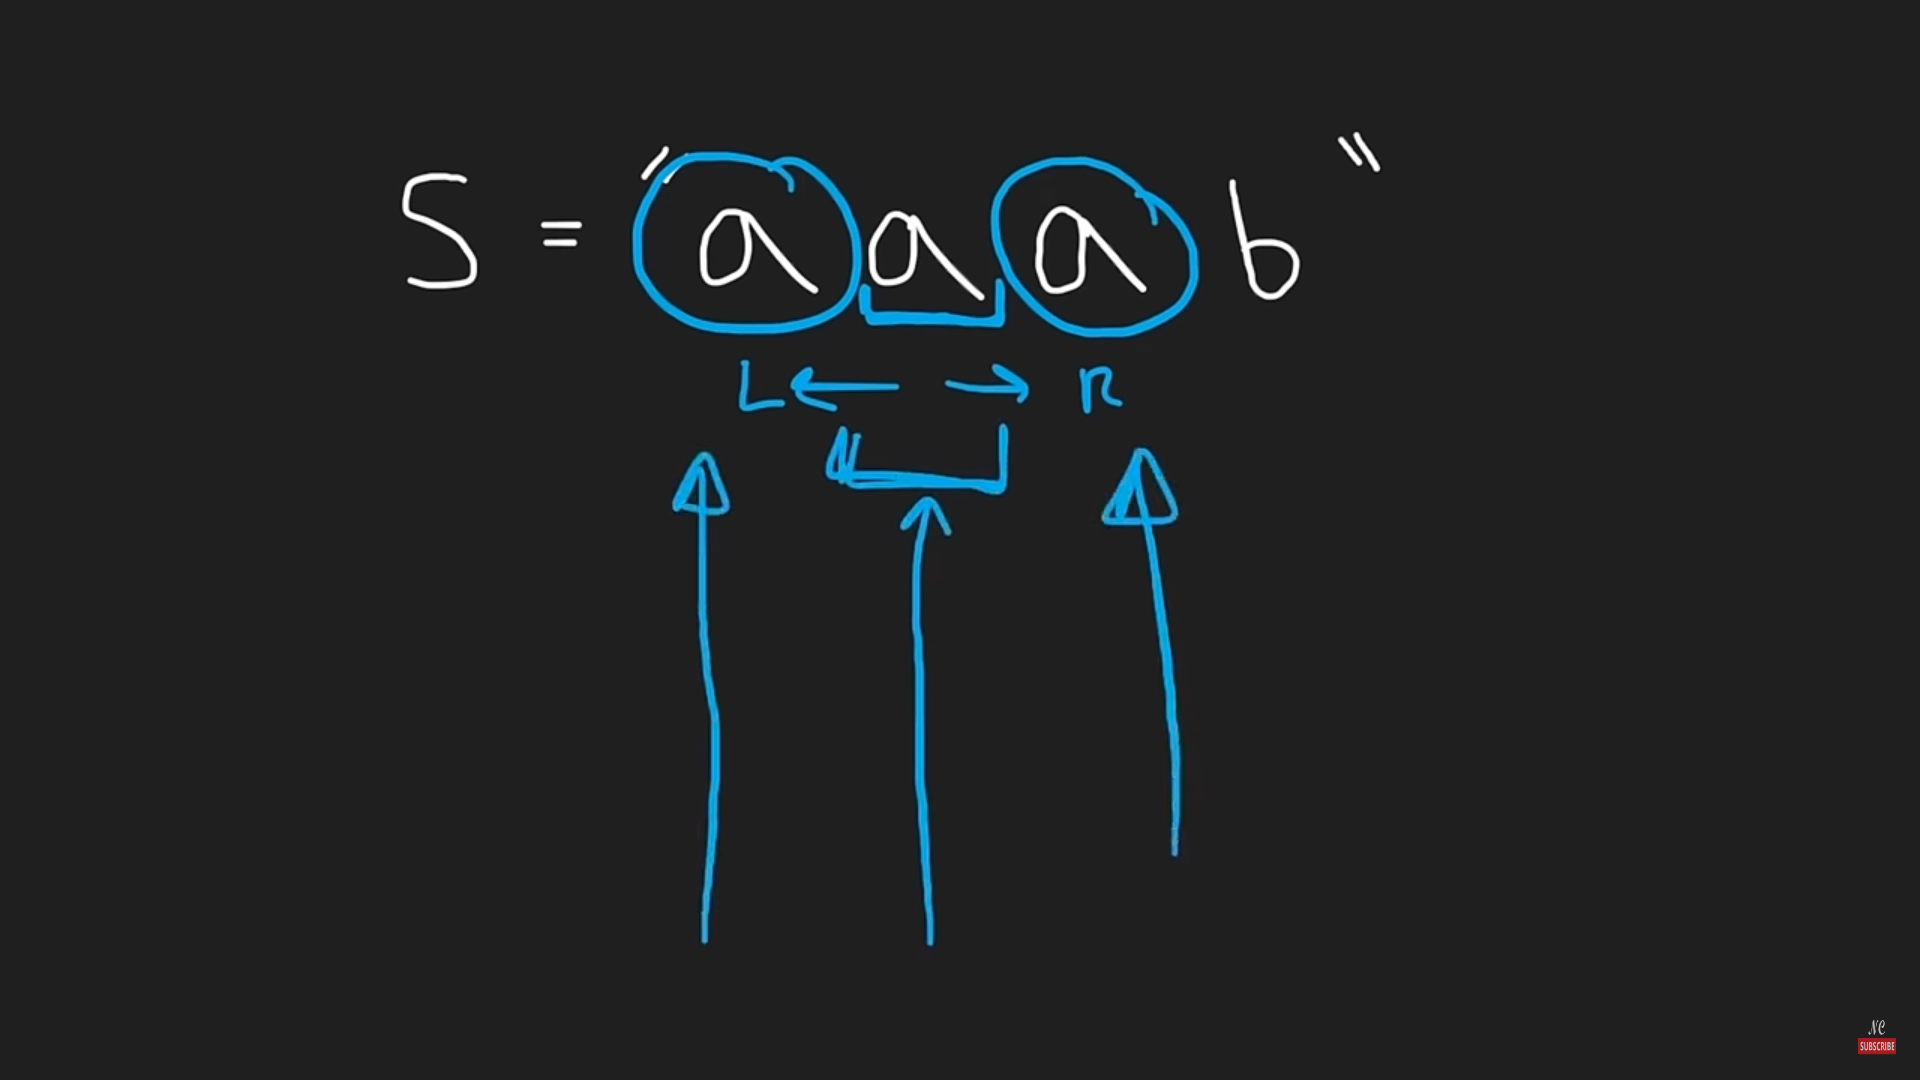 S = "aaab"
L R
NC
SUBSCRIBE